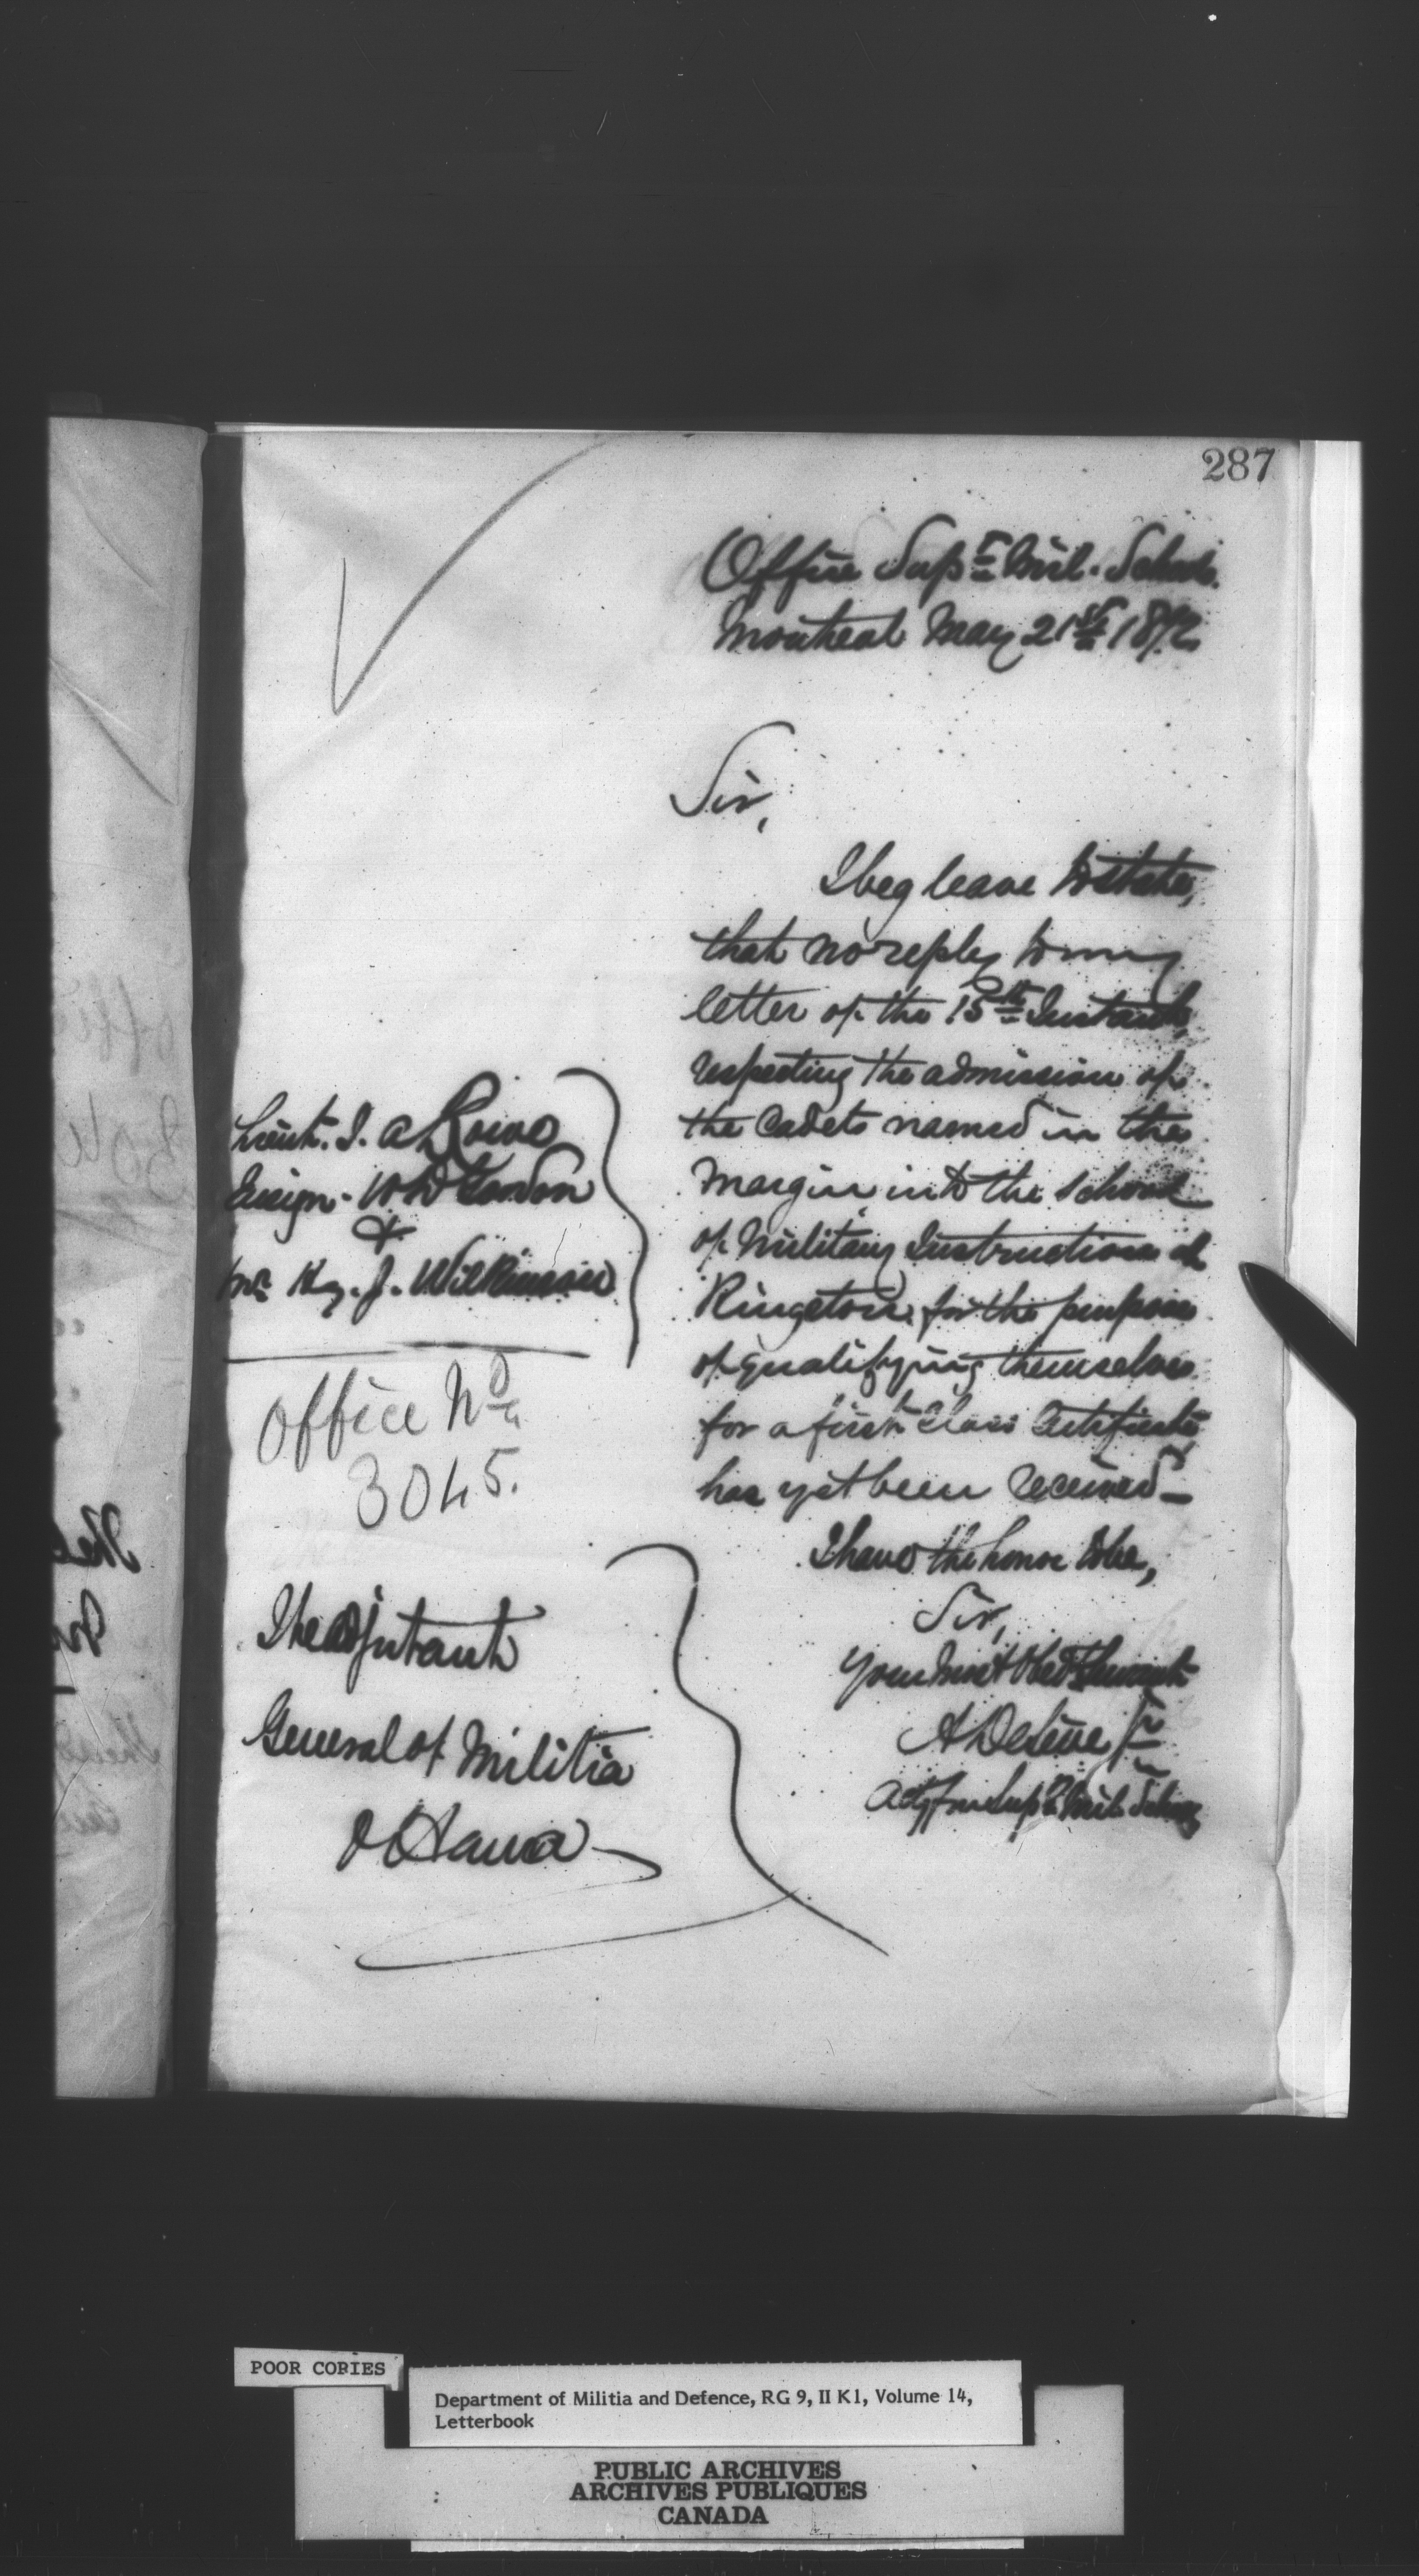 287
Office Supt Mil. Schools.
Montreal May 21st 1872
Sir,
I beg leave to state,
that no reply to my
letter of the 15th Instant,
respecting the admission of
the Cadets named in the
margin into the School
of Military Instruction at
Kingston, for the purpose
of qualifying themselves
for a first Class Certificate,
has yet been received—
Lieut. J. A.
Ensign W D
&
Mr Hy. J. Wilkinson
Office No.
3045.
I have the honor to be,
Sir,
Your Most Obedt Servant
A
for Supt Mil. Schools
The Adjutant
General of Militia
Ottawa
POOR COPIES
Department of Militia and Defence, RG 9, II K1, Volume 14,
Letterbook
PUBLIC ARCHIVES
ARCHIVES PUBLIQUES
CANADA